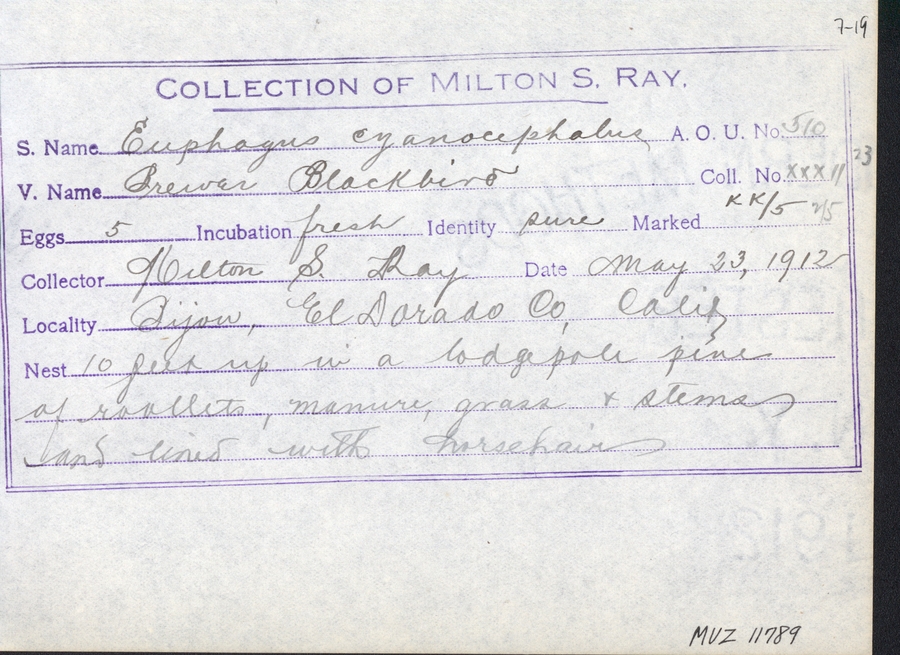 7-19
COLLECTION OF MILTON S. RAY.
S. Name Euphagus cyanocephalus A. O. U. No. 510
V. Name Brewer Blackbird Coll. No. xxx11 23
Eggs 5 Incubation fresh Identity sure Marked KK/5 2/5
Collector Milton S. Ray Date May 23, 1912
Locality Bijou, El Dorado Co, Calif
Nest 10 feet up in a lodgepole pine
of rootlets, manure, grass & stems
and lined with horsehair
MVZ 11789